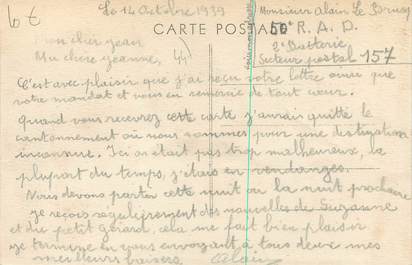 6 €
Le 14 Octobre 1939
CARTE POSTALE
Monsieur Alain Le
50e R. A. D.
2e Batterie
Secteur postal 157
Mon cher Jean
Ma chère Jeanne,
C'est avec plaisir que j'ai reçu votre lettre ainsi que
votre mandat et vous en remercie de tout cœur.
Quand vous recevrez cette carte j'aurais quitté le
cantonnement où nous sommes pour une distination
inconnue. Ici on était pas trop malheureux, la
plupart du temps, j'étais en vendanges.
Nous devons partir cette nuit ou la nuit prochaine
Je reçois régulièrement des nouvelles de Suzanne
et du petit gérard, cela me fait bien plaisir
Je termine en vous envoyant à tous deux mes
meilleurs baisers Alain